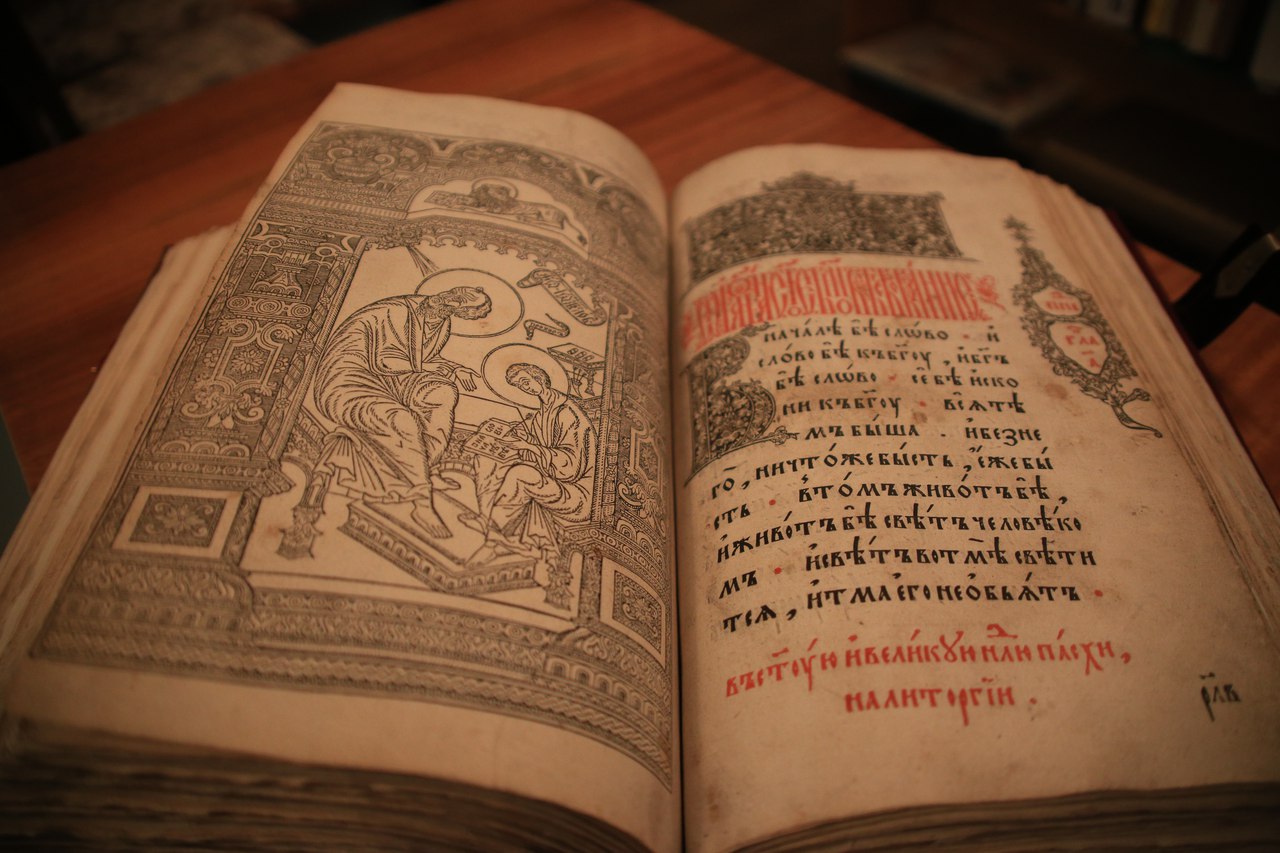 В началѣ бѣ слѡво · и҆
сло́во бѣ къбг҃оу , и҆бг҃ъ
бѣ слѡво · се́ бѣ и҆ско
ни къбг҃оу · всѧ̀ тѣ
мъ бы́ша . и҆безне
го̀ , ничто́жебы́сть , є҆́жебы́
сть · вто́мъживо́тъбѣ̀ ,
и҆живо́тъбѣ̀ свѣ́тъчеловѣ́ко
мъ · и҆свѣ́тъвотмѣ̀ свѣ́ти
тсѧ , и҆тмаєгонеѻбьѧ́тъ ·
въст҃оу́ю и҆вели́кꙋю нл҃ю па́схи ,
налиторгі́и .
гла
а҃
рл҃в